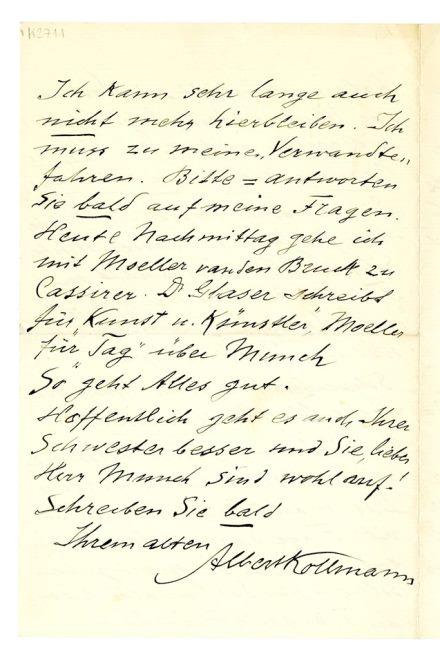 K2711
Ich kann sehr lange auch
nicht mehr hierbleiben. Ich
muss zu meine „Verwandte„
fahren. Bitte = antworten
Sie bald auf meine Fragen.
Heute Nachmittag gehe ich
mit Moeller van den Bruck zu
Cassirer. Dr Glaser schreibt
für „Kunst u. Künstler", Moeller
für "Tag" über Munch
So geht Alles gut.
Hoffentlich geht es auch Ihrer
Schwester besser und Sie, lieber
Herr Munch sind wohlauf!
Schreiben Sie bald
Ihrem alten
Albert Kollmann